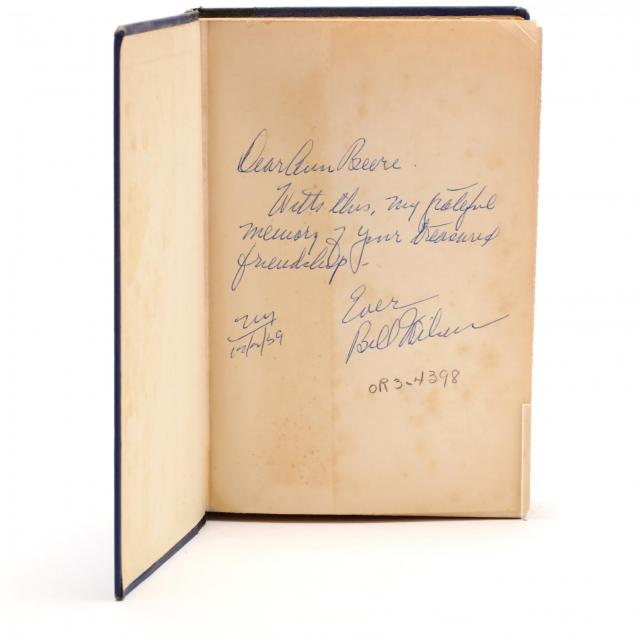 Dear Ann Beere.
With this, my grateful
memory of your treasured
friendship -
Ever
NY
Bill Wilson
/59
OR3-4398